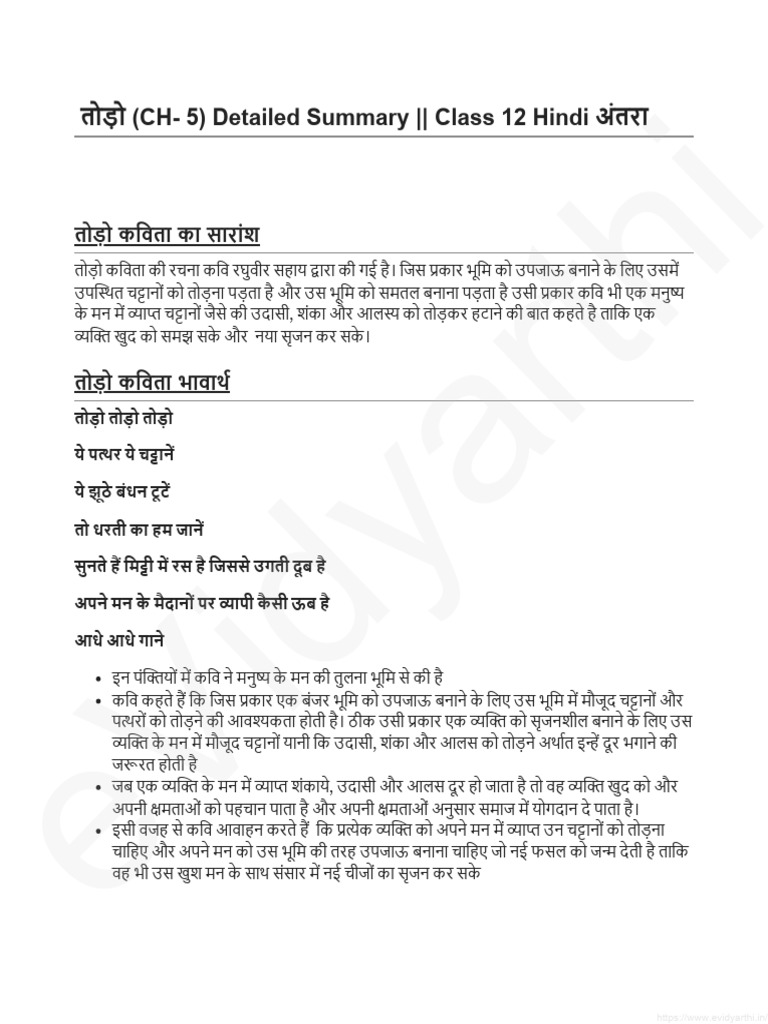 तोड़ो (CH- 5) Detailed Summary || Class 12 Hindi अंतरा
तोड़ो कविता का सारांश
तोड़ो कविता की रचना कवि रघुवीर सहाय द्वारा की गई है। जिस प्रकार भूमि को उपजाऊ बनाने के लिए उसमें
उपस्थित चट्टानों को तोड़ना पड़ता है और उस भूमि को समतल बनाना पड़ता है उसी प्रकार कवि भी एक मनुष्य
के मन में व्याप्त चट्टानों जैसे की उदासी, शंका और आलस्य को तोड़कर हटाने की बात कहते है ताकि एक
व्यक्ति खुद को समझ सके और नया सृजन कर सके।
तोड़ो कविता भावार्थ
तोड़ो तोड़ो तोड़ो
ये पत्थर ये चट्टानें
ये झूठे बंधन टूटें
तो धरती का हम जानें
सुनते हैं मिट्टी में रस है जिससे उगती दूब है
अपने मन के मैदानों पर व्यापी कैसी ऊब है
आधे आधे गाने
• इन पंक्तियों में कवि ने मनुष्य के मन की तुलना भूमि से की है
• कवि कहते हैं कि जिस प्रकार एक बंजर भूमि को उपजाऊ बनाने के लिए उस भूमि में मौजूद चट्टानों और
पत्थरों को तोड़ने की आवश्यकता होती है। ठीक उसी प्रकार एक व्यक्ति को सृजनशील बनाने के लिए उस
व्यक्ति के मन में मौजूद चट्टानों यानी कि उदासी, शंका और आलस को तोड़ने अर्थात इन्हें दूर भगाने की
जरूरत होती है
• जब एक व्यक्ति के मन में व्याप्त शंकाये, उदासी और आलस दूर हो जाता है तो वह व्यक्ति खुद को और
अपनी क्षमताओं को पहचान पाता है और अपनी क्षमताओं अनुसार समाज में योगदान दे पाता है।
• इसी वजह से कवि आवाहन करते हैं कि प्रत्येक व्यक्ति को अपने मन में व्याप्त उन चट्टानों को तोड़ना
चाहिए और अपने मन को उस भूमि की तरह उपजाऊ बनाना चाहिए जो नई फसल को जन्म देती है ताकि
वह भी उस खुश मन के साथ संसार में नई चीजों का सृजन कर सके
evidyarthi
https://www.evidyarthi.in/